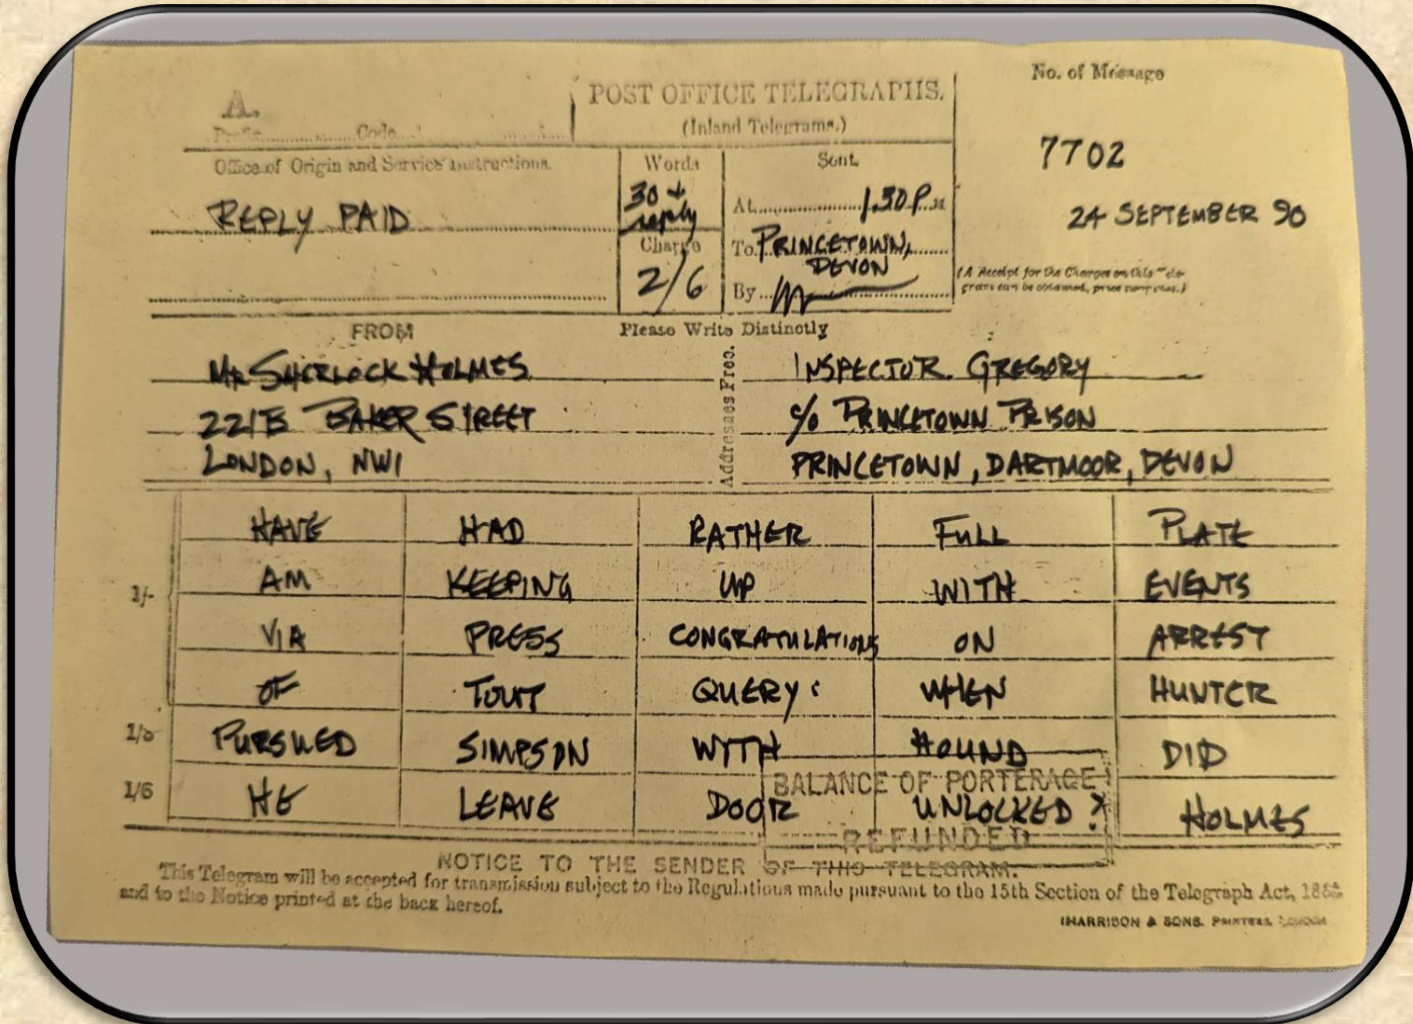 A.
Code
POST OFFICE TELEGRAPHS.
(Inland Telegrams.)
No. of Message
7702
24 SEPTEMBER 90
Office of Origin and Service Instructions.
REPLY PAID
Words
30 + reply
Charge
2/6
Sent.
At 1.30 P.M
To PRINCETOWN, DEVON
By
(A Receipt for the Charges on this
gram can be obtained, price
FROM
Please Write Distinctly
MR SHERLOCK HOLMES
221B BAKER STREET
LONDON, NW1
Addresses Free.
INSPECTOR. GREGORY
c/o PRINCETOWN PRISON
PRINCETOWN, DARTMOOR, DEVON
HAVE HAD RATHER FULL PLATE
1/- AM KEEPING UP WITH EVENTS
VIA PRESS CONGRATULATIONS ON ARREST
OF TOUT QUERY: WHEN HUNTER
PURSUED SIMPSON WITH HOUND DID
1/6 HE LEAVE DOOR UNLOCKED? HOLMES
BALANCE OF PORTERAGE
REFUNDED
NOTICE TO THE SENDER OF THIS TELEGRAM.
This Telegram will be accepted for transmission subject to the Regulations made pursuant to the 15th Section of the Telegraph Act,
and to the Notice printed at the back hereof.
(HARRISON & SONS. PRINTERS, LONDON